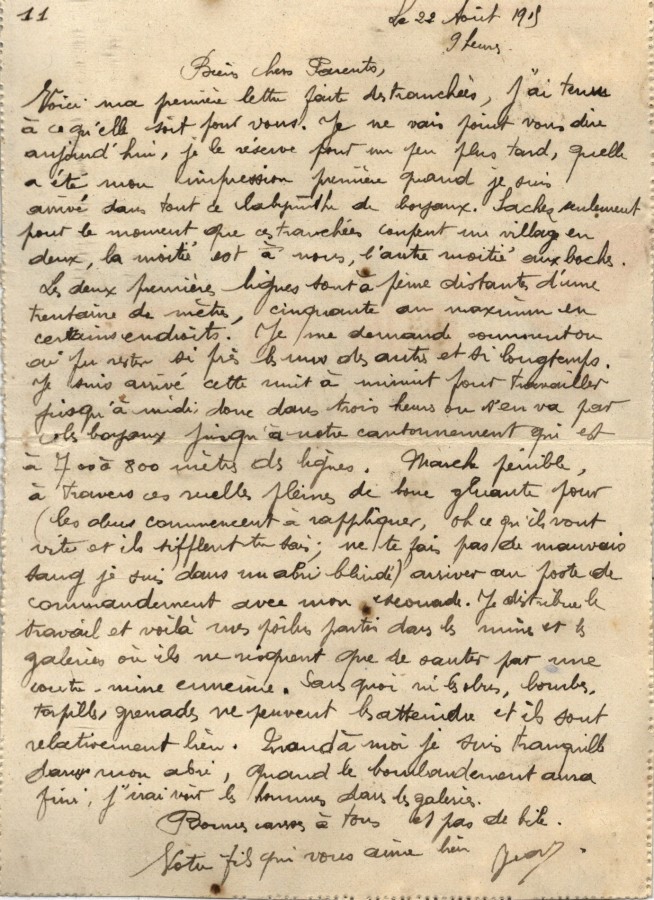 11
Le 22 Août 1915
9 heures.
Biens chers Parents,
Voici ma première lettre faite des tranchées, j'ai tenu
à ce qu'elle soit pour vous. Je ne vais point vous dire
aujourd'hui, je le réserve pour un peu plus tard, quelle
a été mon impression première quand je suis
arrivé dans tout ce labyrinthe de boyaux. Sachez seulement
pour le moment que ces tranchées coupent un village en
deux, la moitié est à nous, l'autre moitié aux boches.
Les deux premières lignes sont à peine distantes d'une
trentaine de mètres, cinquante au maximum en
certains endroits. Je me demande comment on
a pu rester si près les uns des autres et si longtemps.
Je suis arrivé cette nuit à minuit pour travailler
jusqu'à midi; donc dans trois heures on s'en va par
les boyaux jusqu'à notre cantonnement qui est
à 700 à 800 mètres des lignes. Marche pénible,
à travers ces ruelles pleines de boue gluante pour
(les obus commencent à rappliquer, oh ce qu'ils vont
vite et ils sifflent tu sais; ne te fais pas de mauvais
sang je suis dans un abri blindé) arriver au poste de
commandement avec mon escouade. Je distribue le
travail et voilà mes poilus partis dans les mines et les
galeries où ils ne risquent que de sauter par une
contre-mine ennemie. Sans quoi ni les obus, bombes,
torpilles, grenades ne peuvent les atteindre et ils sont
relativement bien. Quand à moi je suis tranquille
dans mon abri, quand le bombardement aura
fini, j'irai voir les hommes dans les galeries.
Bonnes à tous et pas de bile.
Votre fils qui vous aime bien